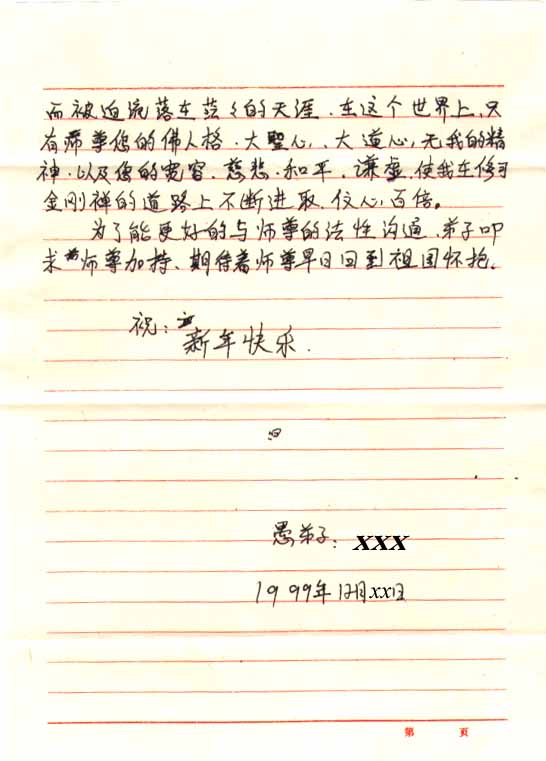 而被迫流落在茫々的天涯.在这个世界上,只
有师尊您的佛人格.大聖心,大道心,无我的精
神.以及您的宽容.慈悲.和平.谦虚.使我在修习
金刚禅的道路上不断进取.信心百倍。
为了能更好的与师尊的法性沟通.弟子叩
求师尊加持、期待着师尊早日回到祖国怀抱.
祝:
新年快乐.
愚弟子: XXX
1999年12月xx日
第 页